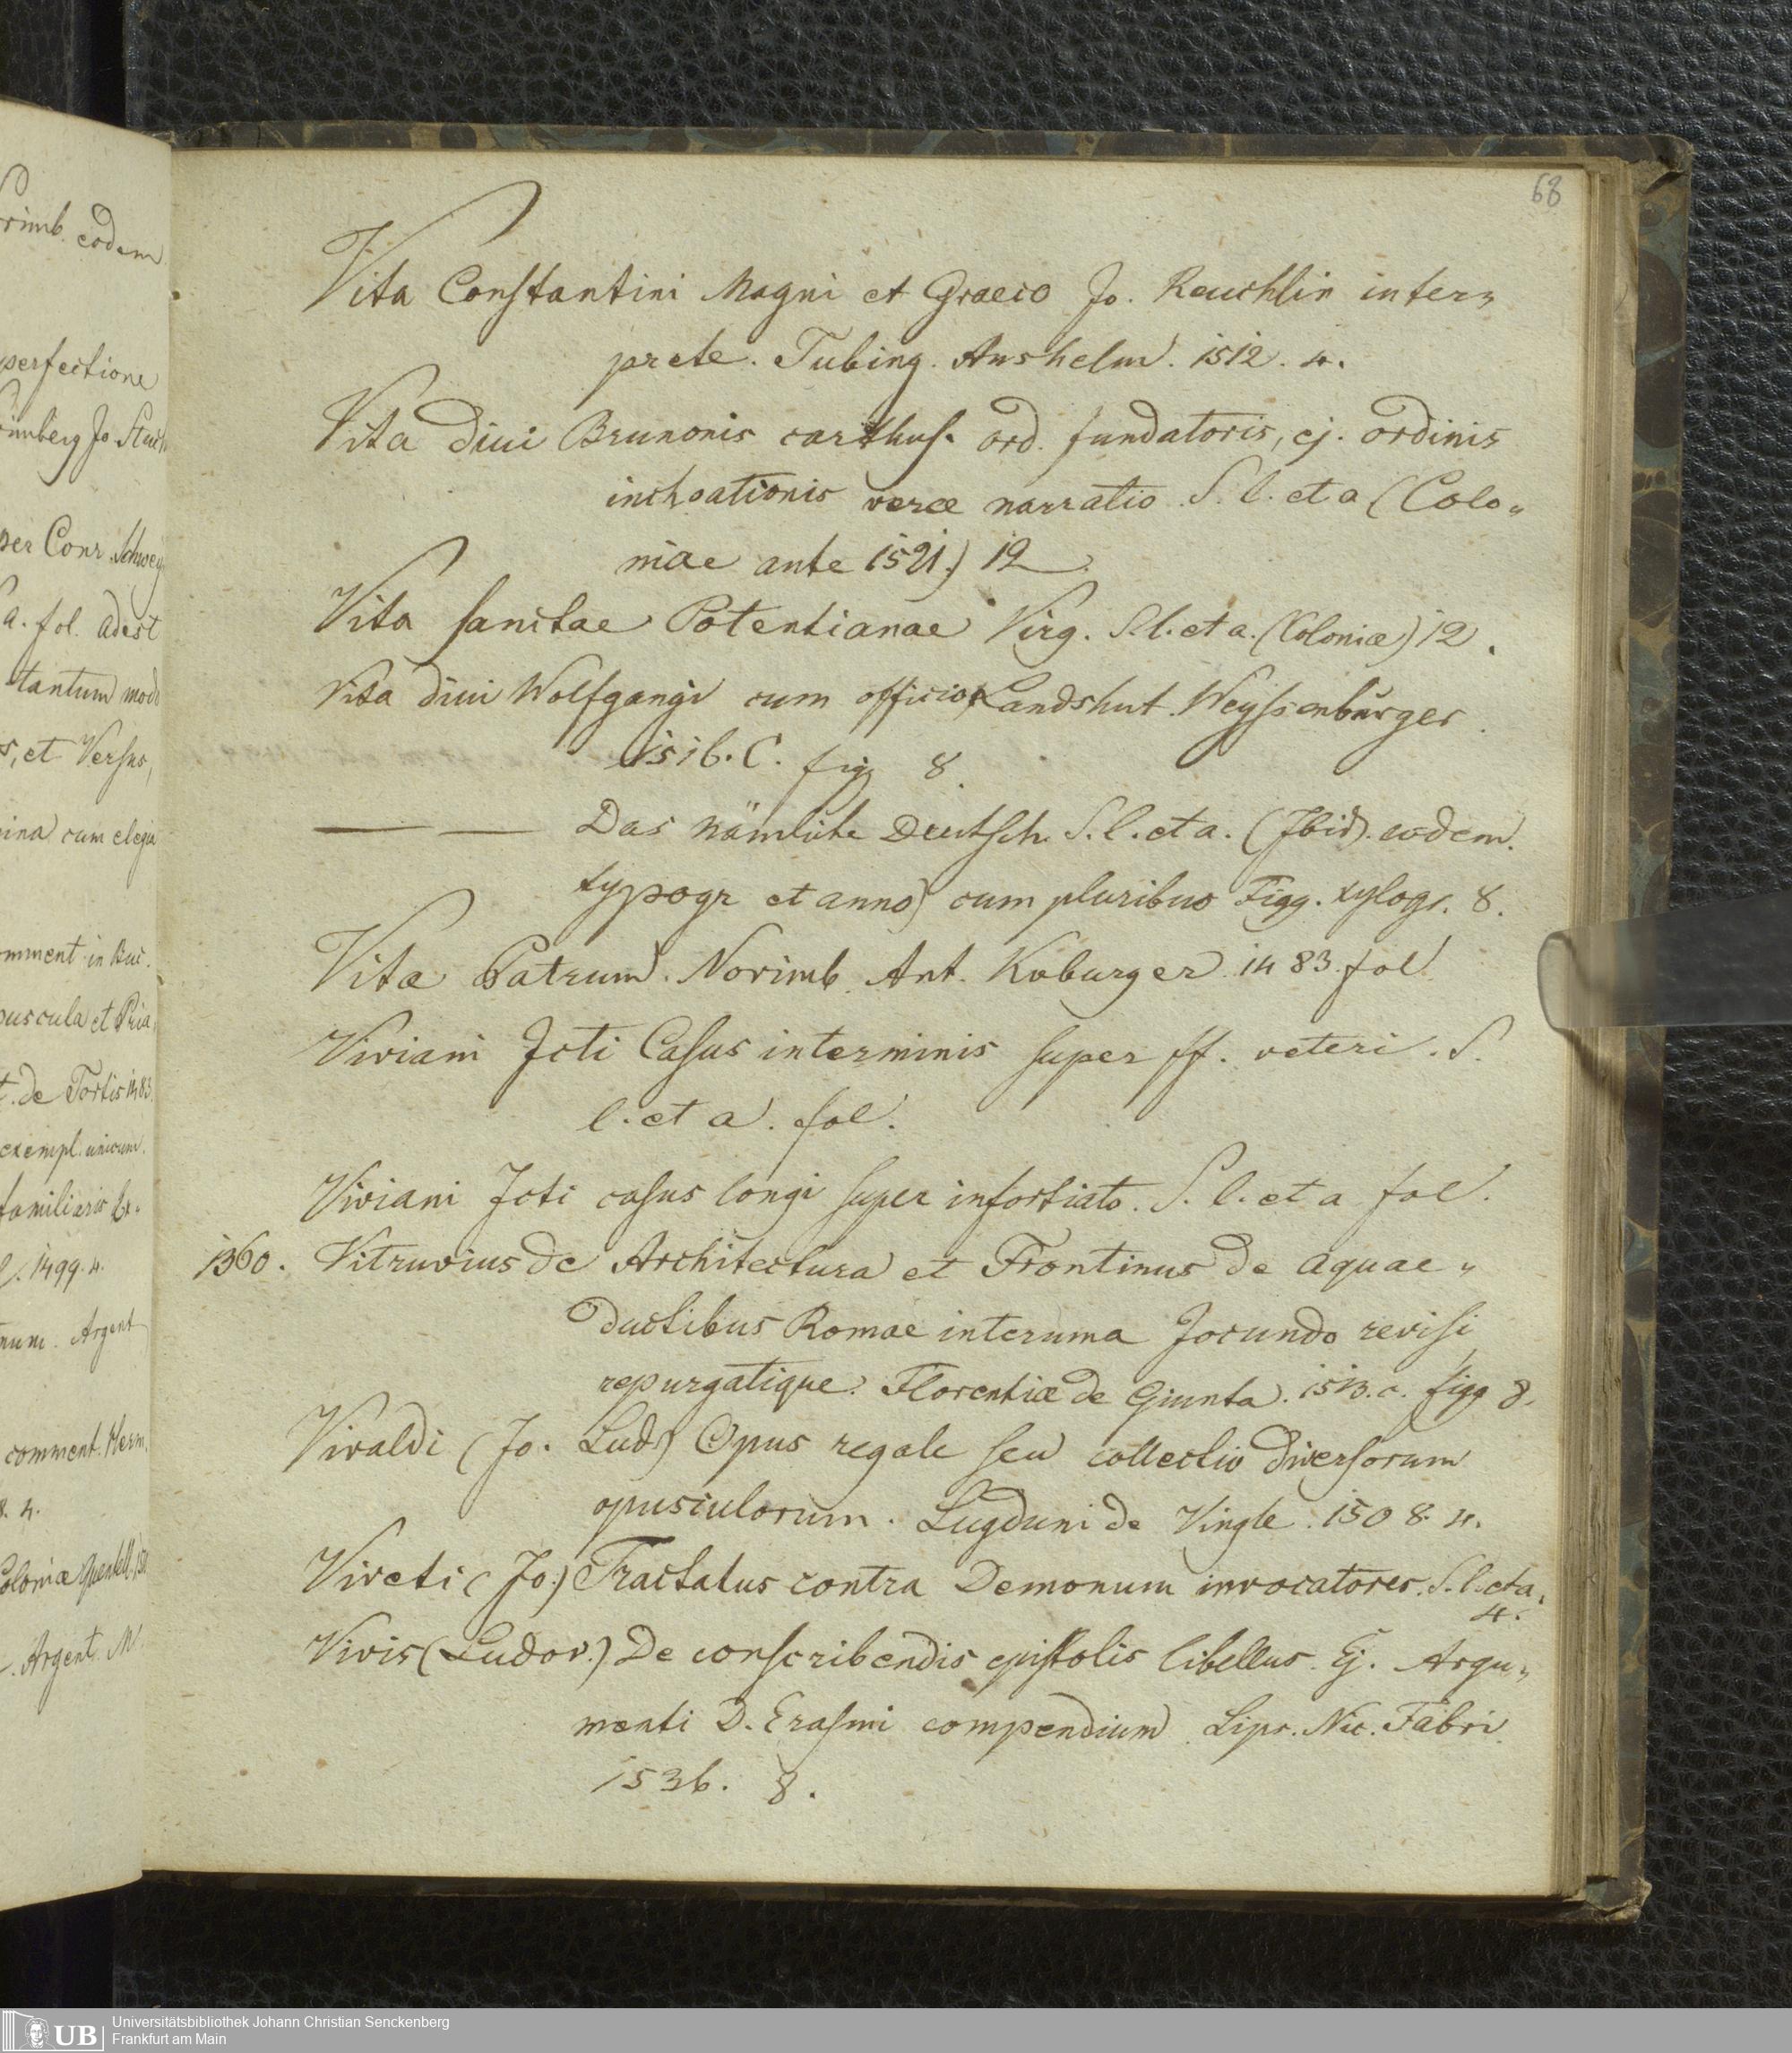 rimb. eodem
perfectione
per Conr. Schwey
a. fol. adest
tantum mod
s, et Versus,
ina cum elegia
omment. in Buc.
puscula et Pria
t. de Tortis 1483.
exempl. unicum.
familiaris
1499. 4.
num. Argent
comment. Herm.
8. 4.
Coloniæ Quentell.
Argent. M.
68
Vita Constantini Magni et Graeco Jo. Reuchlin inter„
prete. Tubing. Anshelm. 1512. 4.
Vita diui Brunonis carthus. ord. fundatoris, ej. ordinis
inchoationis veræ narratio S. l. et a (Colo„
niae ante 1521.) 12.
Vita sanctae Potentianae Virg. S. l. et a. (Coloniæ) 12.
Vita diui Wolfgangi cum officio Landshut. Weyssenbürger.
1516. C. fig 8.
— — Das nämliche Deutsch. S. l. et a. (Ibid. eodem.
typogr et anno) cum pluribus Figg. xylogr. 8.
Vitæ Patrum. Norimb. Ant. Koburger. 1483. fol.
Viviani Jcti Casus interminis super ff. veteri. S.
l. et a. fol.
Viviani Jcti casus longi super infortiato. S. l. et a fol.
1360. Vitruvius de Architectura et Frontinus de aquae„
ductibus Romae interuma Jocundo revisi,
repurgatique. Florentiæ de Giunta. 1513. c. figg 8.
Vivaldi (Jo. Lud.) Opus regale seu collectio diversorum
opusculorum. Lugduni de Vingle. 1508. 4.
Viveti (Jo.) Tractatus contra Demonum invocatores. S. l. et a.
4.
Vivis (Ludov.) De conscribendis epistolis libellus. Ej. Argu„
menti D. Erasmi compendium. Lips. Nic. Fabri.
1536. 8.
UB
Universitätsbibliothek Johann Christian Senckenberg
Frankfurt am Main